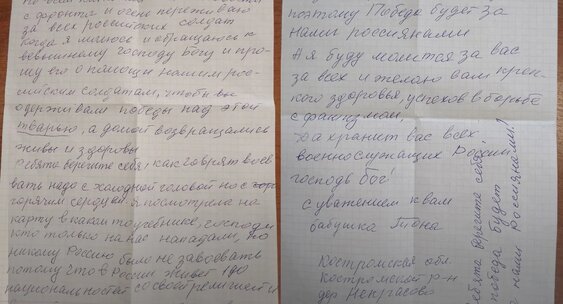 с фронта и очень переживаю
за всех российских солдат
когда я молюсь и обращаюсь к
всевышнему господу Богу и про-
шу его о помощи нашим рос-
сийским солдатам, чтобы вы
одерживали победы над этой
тварью, а домой возвращались
живы и здоровы
Ребята берегите себя, как говорят воев
вать надо с холодной головой но с
горячим сердцем. Я посмотрела на
карту в каком то учебнике, господи
кто только на нас нападали, но
никому Россию было не завоевать
потому что в России живет 190
национальностей со своей религией и
поэтому Победа будет за
нами россиянами
А я буду молится за вас
за всех и желаю вам креп-
кого здоровья, успехов в борьбе
с фашизмом,
Да хранит вас всех
военнослужащих России
господь Бог!
С уважением к вам
бабушка Тона
Костромская обл.
Костромской р-н
дер Некрасово
Ребята берегите себя!
победа будет
нами Россиянами!